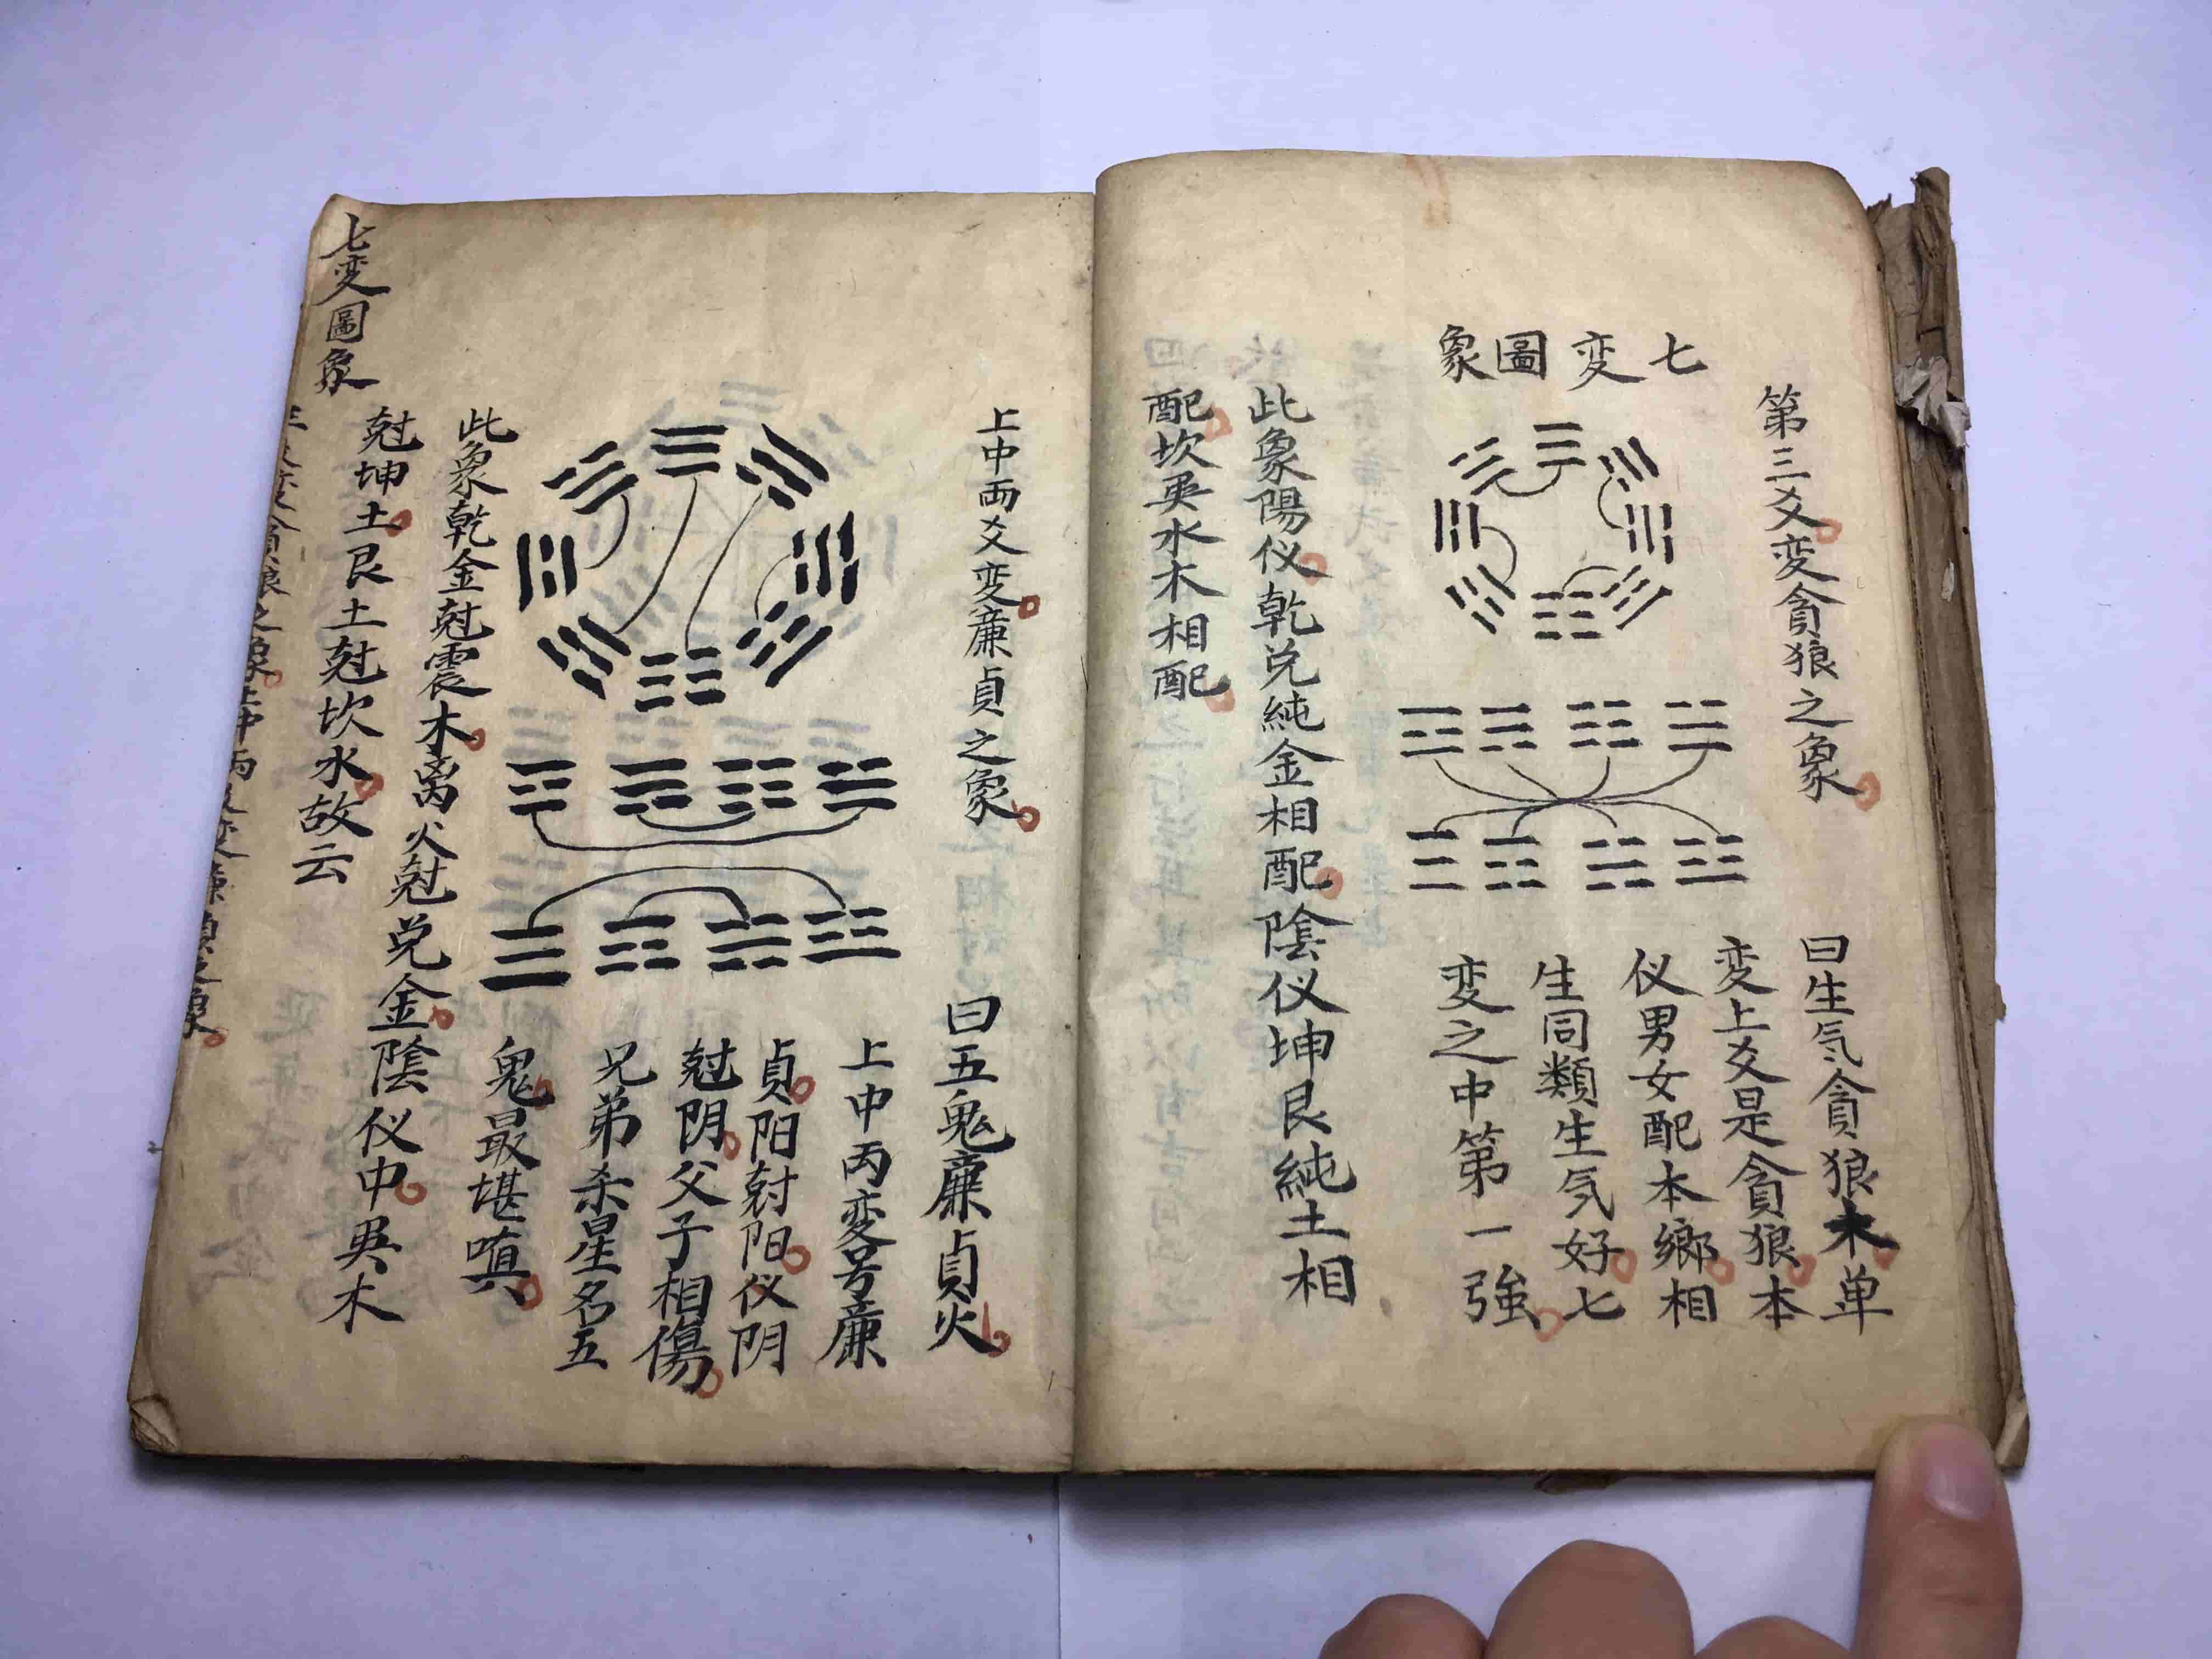 七変圖象
第三爻変貪狼之象
曰生気貪狼木单
変上爻是貪狼本
仪男女配本鄉相
生同類生気好七
変之中第一強
此象陽仪乾兑純金相配陰仪坤艮純土相
配坎巽水木相配
上中両爻変廉貞之象
曰五鬼廉貞火
上中丙变号廉
貞阳尅阳仪阴
尅阴父子相傷
兄弟杀星名五
鬼最堪嗔
此象乾金尅震木离火尅兑金陰仪中巽木
尅坤土艮土尅坎水故云
七变圖象
爻変貪狼之象上中両爻变廉貞之象